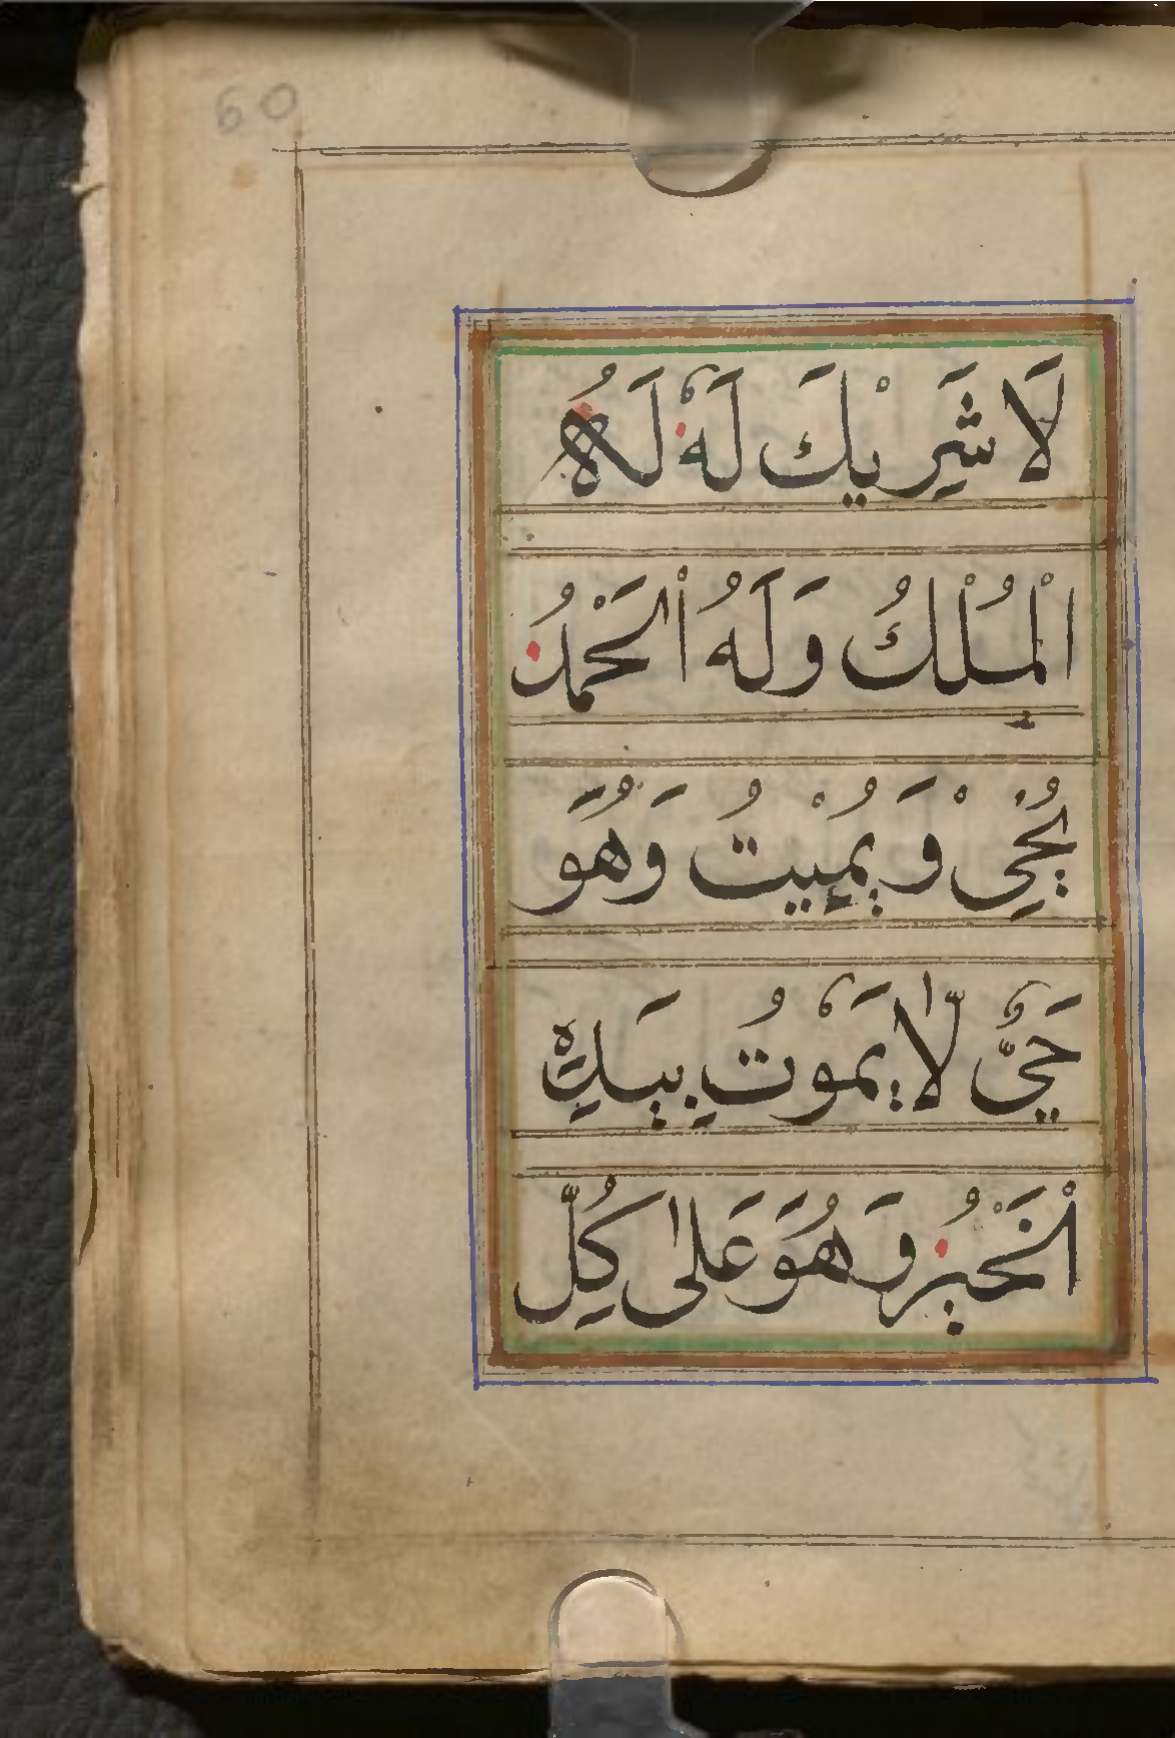 60
لَا شَرِيْكَ لَهٗ لَهُ
الْمُلْكُ وَلَهُ الْحَمْدُ
يُحْيِيْ وَيُمِيْتُ وَهُوَ
حَيٌّ لَّا يَمُوْتُ بِيَدِهِ
الْخَيْرُ وَهُوَ عَلٰى كُلِّ